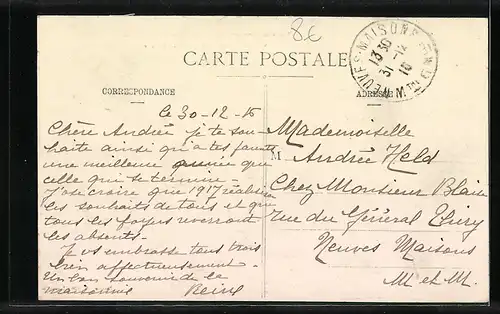 8€
CARTE POSTALE
NEUVES-MAISONS
13 30
31 -12
16
CORRESPONDANCE
ADRESSE
le 30-12-16
Chère Andrée je te sou-
haite ainsi qu'a tes parents
une meilleure année que
celle qui se termine -
J'ose croire que 1917 réalisera
les souhaits de tous et que
tous les foyers reverront
les absents -
Je vs embrasse tous trois
bien affectueusement -
Un bon souvenir de la
Reine
Mademoiselle
M Andrée Held
Chez Monsieur Blaise
rue du Général Thiry
Neuves Maisons
M et M.